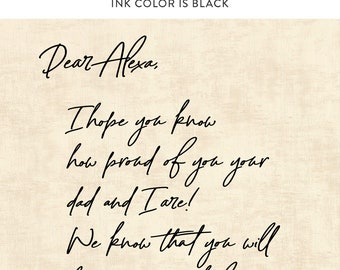 INK COLOR IS BLACK
Dear Alexa,
I hope you know
how proud of you your
dad and I are!
We know that you will